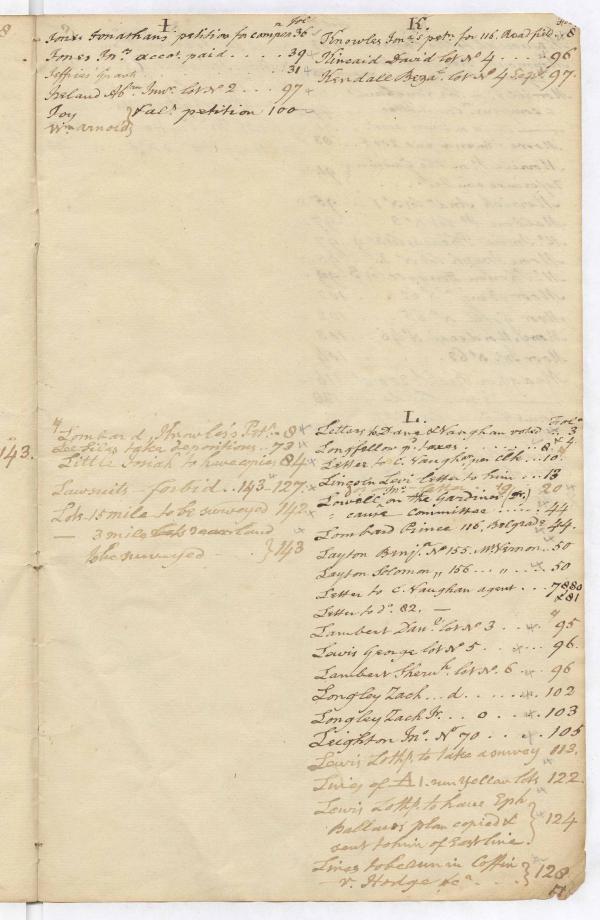 I.
Fol.
Jones Jonathan's petition for
36
Jones Jn.º acco.t paid . . . . 39
Jeffries 31
Ireland Ab.m Jun.r lot Nº 2 . . . 97
Joy
Wm. Arnold } petition 100
K.
Knowles Jon.as pet.n for 116. Readfield . 8
Kincaid David lot Nº 4 . . . . 96
Kendall Beza.l lot Nº 4 Sep.t 97.
143.
Lombard, Knowles's Pet.n 8
take depositions . 73
Little Josiah to have copies 84
Lawsuits forbid . . 143 - 127.
Lots 15 mile to be surveyed 142
— 3 mile land
to be surveyed - } 143
L.
Letters to Dane & Vaughan voted . 3
Longfellow taxes . . . . . 8 & 4
Letter to C. Vaughan per Clk. . . 10
Lincoln Levi letter to him . . 13
Lowell Jn.º on the Gardiner 20
cause — Committee . . . . 44
Lombard Prince 116. Belgrade 44.
Layton Benj.n Nº 155. Mt. Vernon . . 50
Layton Solomon „ 156 . . . „ . . . 50
Letter to C. Vaughan agent . . . 78 80
& 81
Letter to dº. 82. —
Lambert Dan.l lot Nº 3 . . . . 95
Lewis George lot Nº 5 . . . . 96.
Lambert Sher.h lot Nº. 6 . . 96
Longley Zach . . . d . . . . . 102
Longley Zach Jr. . . o . . . . 103
Leighton Jn.º Nº 70 . . . . . 105
Lewis Loth.p to take a survey 113.
Lines of A1. run Yellow lots 122.
Lewis Loth.p to have Eph
Ballards plan copied &
sent to him of East line } 124
Lines to be run in Coffin
v. Hodge &c.a . . . . } 128